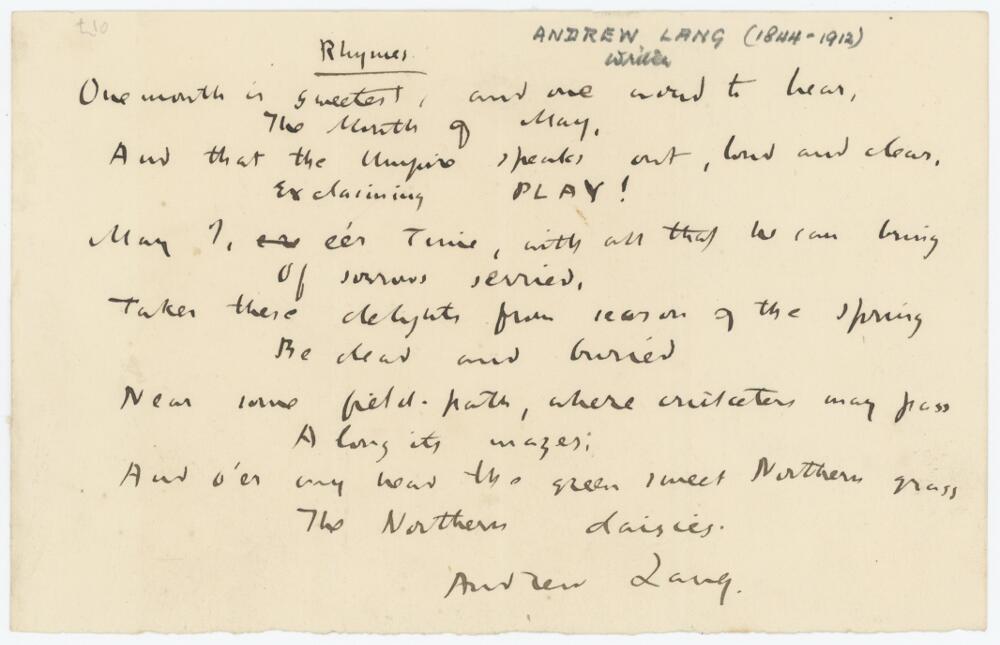 ANDREW LANG (1844-1912)
written
Rhymes
One month is sweetest, and one word to hear,
The Month of May,
And that the Umpire speaks out, loud and clear,
Exclaiming PLAY!
May I, e'er Time, with all that he can bring
Of sorrows serried,
Takes these delights from season of the spring
Be dead and buried
Near some field-path, where cricketers may pass
Along its mazes;
And o'er my head the green sweet Northern grass
The Northern daisies.
Andrew Lang.